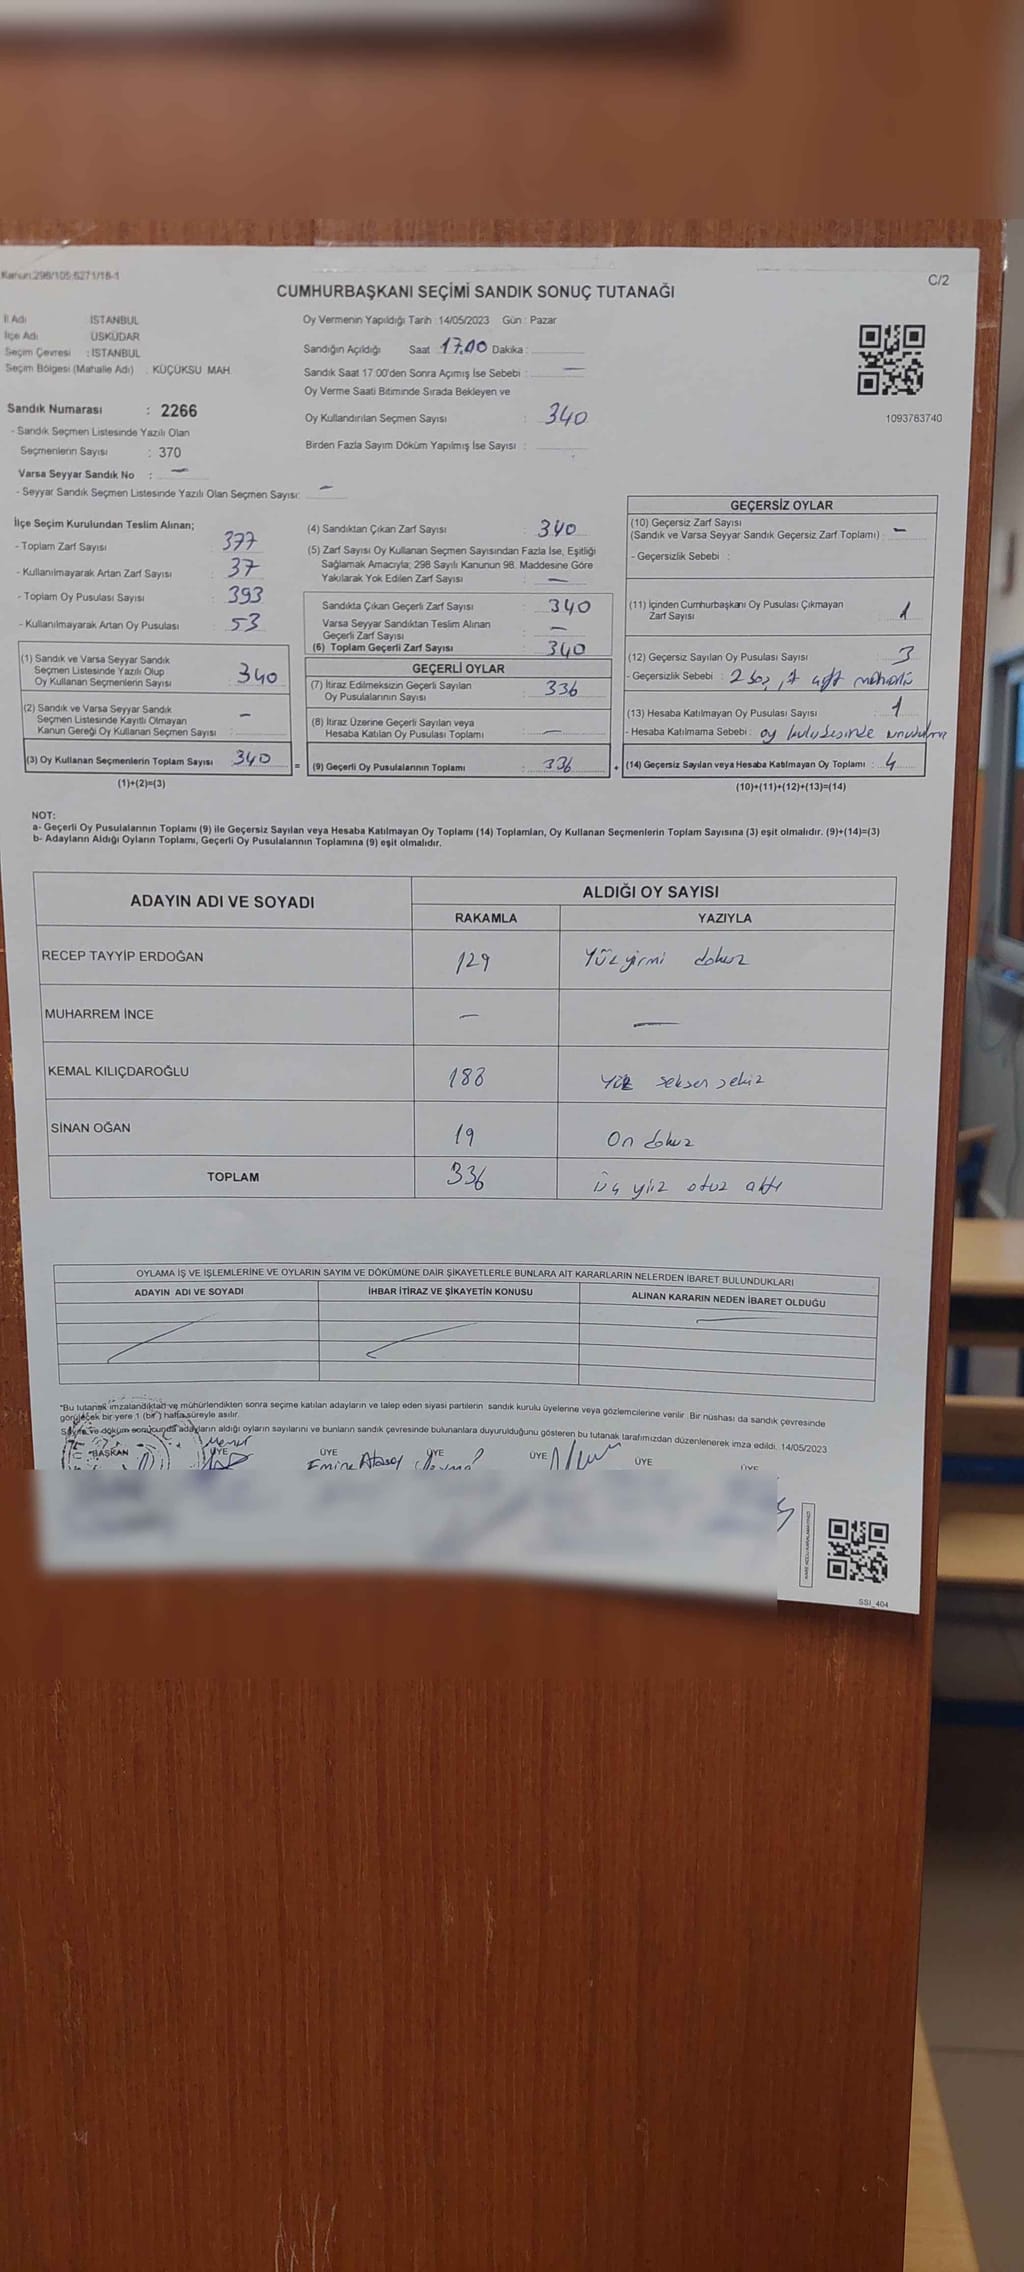 Kanun:298/105;6271/18-1
C/2
CUMHURBAŞKANI SEÇİMİ SANDIK SONUÇ TUTANAĞI
İl Adı İSTANBUL
İlçe Adı ÜSKÜDAR
Seçim Çevresi : İSTANBUL
Seçim Bölgesi (Mahalle Adı) . KÜÇÜKSU MAH.
Sandık Numarası : 2266
- Sandık Seçmen Listesinde Yazılı Olan
Seçmenlerin Sayısı : 370
Varsa Seyyar Sandık No : –
- Seyyar Sandık Seçmen Listesinde Yazılı Olan Seçmen Sayısı: –
Oy Vermenin Yapıldığı Tarih :14/05/2023 Gün : Pazar
Sandığın Açıldığı Saat 17.00 Dakika :
Sandık Saat 17:00'den Sonra Açımış İse Sebebi : –
Oy Verme Saati Bitiminde Sırada Bekleyen ve
Oy Kullandırılan Seçmen Sayısı : 340
Birden Fazla Sayım Döküm Yapılmış İse Sayısı :
1093763740
İlçe Seçim Kurulundan Teslim Alınan;
- Toplam Zarf Sayısı : 377
- Kullanılmayarak Artan Zarf Sayısı : 37
- Toplam Oy Pusulası Sayısı : 393
- Kullanılmayarak Artan Oy Pusulası : 53
(1) Sandık ve Varsa Seyyar Sandık
Seçmen Listesinde Yazılı Olup
Oy Kullanan Seçmenlerin Sayısı : 340
(2) Sandık ve Varsa Seyyar Sandık
Seçmen Listesinde Kayıtlı Olmayan
Kanun Gereği Oy Kullanan Seçmen Sayısı : –
(3) Oy Kullanan Seçmenlerin Toplam Sayısı 340
(1)+(2)=(3)
(4) Sandıktan Çıkan Zarf Sayısı : 340
(5) Zarf Sayısı Oy Kullanan Seçmen Sayısından Fazla İse, Eşitliği
Sağlamak Amacıyla; 298 Sayılı Kanunun 98. Maddesine Göre
Yakılarak Yok Edilen Zarf Sayısı : –
Sandıkta Çıkan Geçerli Zarf Sayısı : 340
Varsa Seyyar Sandıktan Teslim Alınan
Geçerli Zarf Sayısı : –
(6) Toplam Geçerli Zarf Sayısı : 340
GEÇERLİ OYLAR
(7) İtiraz Edilmeksizin Geçerli Sayılan
Oy Pusulalarının Sayısı : 336
(8) İtiraz Üzerine Geçerli Sayılan veya
Hesaba Katılan Oy Pusulası Toplamı : –
= (9) Geçerli Oy Pusulalarının Toplamı : 336
GEÇERSİZ OYLAR
(10) Geçersiz Zarf Sayısı
(Sandık ve Varsa Seyyar Sandık Geçersiz Zarf Toplamı) : –
- Geçersizlik Sebebi :
(11) İçinden Cumhurbaşkanı Oy Pusulası Çıkmayan
Zarf Sayısı : 1
(12) Geçersiz Sayılan Oy Pusulası Sayısı : 3
- Geçersizlik Sebebi : 2 boş, 1 çift mühürlü
(13) Hesaba Katılmayan Oy Pusulası Sayısı : 1
- Hesaba Katılmama Sebebi :
+ (14) Geçersiz Sayılan veya Hesaba Katılmayan Oy Toplamı : 4
(10)+(11)+(12)+(13)=(14)
NOT:
a- Geçerli Oy Pusulalarının Toplamı (9) ile Geçersiz Sayılan veya Hesaba Katılmayan Oy Toplamı (14) Toplamları, Oy Kullanan Seçmenlerin Toplam Sayısına (3) eşit olmalıdır. (9)+(14)=(3)
b- Adayların Aldığı Oyların Toplamı, Geçerli Oy Pusulalarının Toplamına (9) eşit olmalıdır.
ADAYIN ADI VE SOYADI ALDIĞI OY SAYISI
RAKAMLA YAZIYLA
RECEP TAYYİP ERDOĞAN 129 Yüzyirmi dokuz
MUHARREM İNCE – –
KEMAL KILIÇDAROĞLU 188 Yüz seksen sekiz
SİNAN OĞAN 19 On dokuz
TOPLAM 336 Üç yüz otuz altı
OYLAMA İŞ VE İŞLEMLERİNE VE OYLARIN SAYIM VE DÖKÜMÜNE DAİR ŞİKAYETLERLE BUNLARA AİT KARARLARIN NELERDEN İBARET BULUNDUKLARI
ADAYIN ADI VE SOYADI İHBAR İTİRAZ VE ŞİKAYETİN KONUSU ALINAN KARARIN NEDEN İBARET OLDUĞU
*Bu tutanak imzalandıktad ve mühürlendikten sonra seçime katılan adayların ve talep eden siyasi partilerin sandık kurulu üyelerine veya gözlemcilerine verilir. Bir nüshası da sandık çevresinde
görülecek bir yere 1 (bir) hafta süreyle asılır.
Sayım ve döküm sonucunda adayların aldığı oyların sayılarını ve bunların sandık çevresinde bulunanlara duyurulduğunu gösteren bu tutanak tarafımızdan düzenlenerek imza edildi. 14/05/2023
BAŞKAN ÜYE ÜYE ÜYE ÜYE ÜYE ÜYE
Emine Atasoy
SSI_404